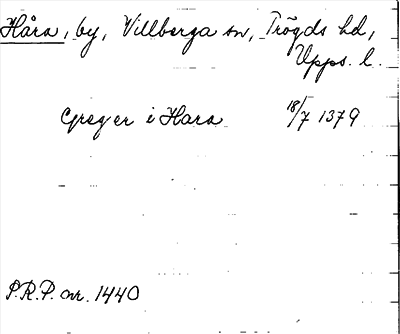 Håra, by, Villberga sn, Trögds hd,
Upps. l.
Greger i Hara 18/7 1379
S.R.P. nr. 1440